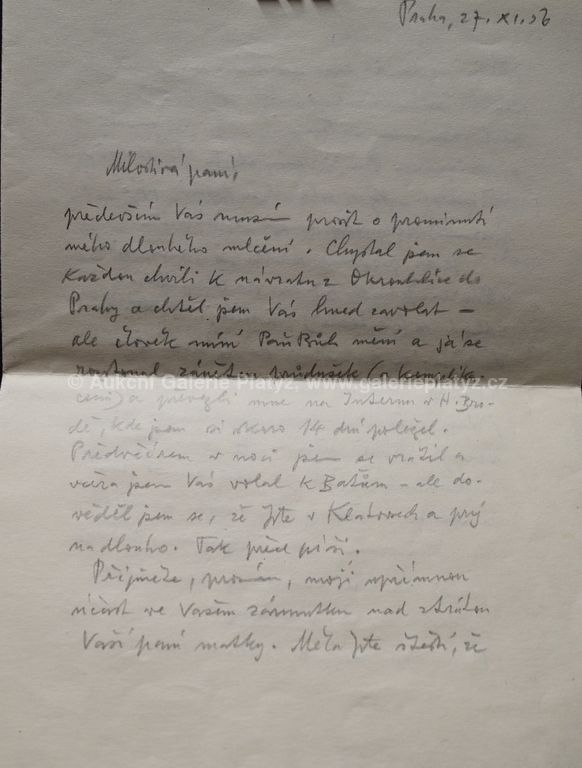 Praha, 27. XI. 56
Milostivá paní,
především Vás musím prosit o prominutí
mého dlouhého mlčení. Chystal jsem se
každou chvíli k návratu z Okrouhlice do
Prahy a chtěl jsem Vás hned zavolat –
ale člověk míní Pán Bůh mění a já se
roztonal zánětem průdušek (s komplik-
© Aukční Galerie Platýz, www.galerieplatyz.cz
cemi) a převezli mne na Internu v H. Bro-
dě, kde jsem si skoro 14 dní poležel.
Předvčírem v noci jsem se vrátil a
včera jsem Vás volal k Baťům – ale do-
věděl jsem se, že jste v Klatovech a prý
na dlouho. Tak přec píši.
Přijměte, prosím, moji upřímnou
účast ve Vašem zármutku nad ztrátou
Vaší paní matky. Měla jste štěstí, že